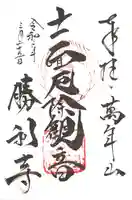 奉拝 萬年山
十一面厄除観音
勝利寺
令和六年
二月二十五日